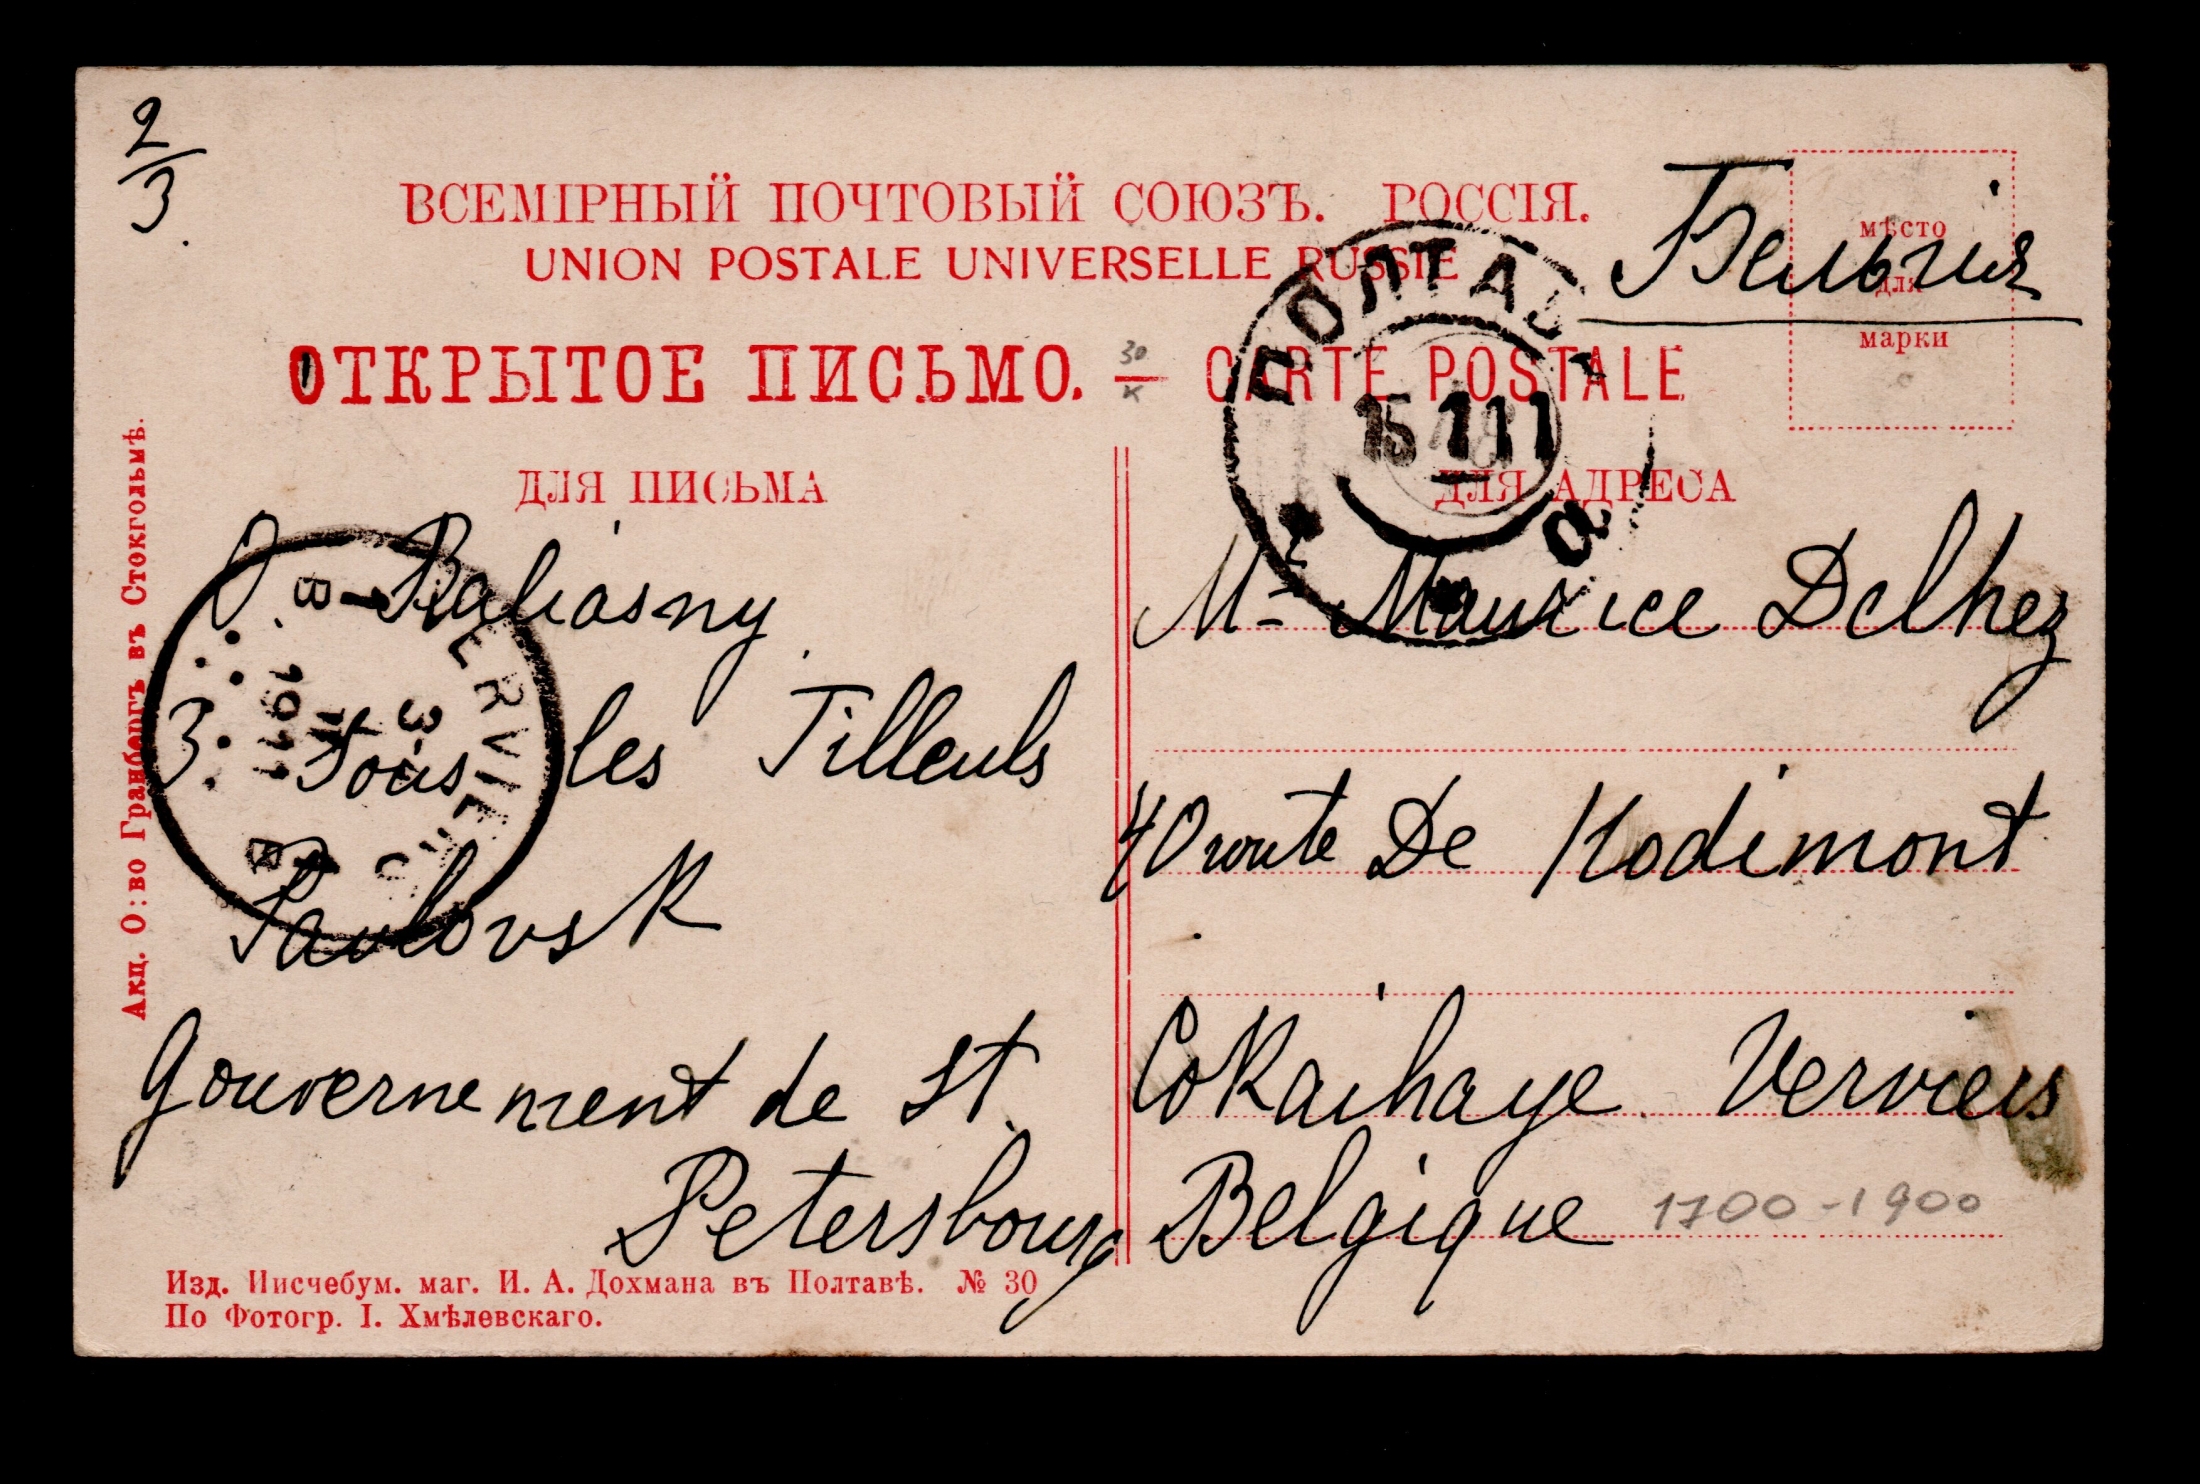 2/3.
ВСЕМІРНЫЙ ПОЧТОВЫЙ СОЮЗЪ. РОССІЯ.
UNION POSTALE UNIVERSELLE RUSSIE
Бельгія
мѣсто
для
марки
ОТКРЫТОЕ ПИСЬМО. — CARTE POSTALE
30
к
ПОЛТАВА
15 1 11
а
ДЛЯ ПИСЬМА
ДЛЯ АДРЕСА
Raliasny
3. Sous les Tilleuls
Pavlovsk
Gouvernement de St.
Petersbourg
VERVIERS
3
1911
Mr Maurice Delhez
40 route De Hodimont
Cokaihaye Verviers
Belgique
1700-1900
Акц. О:во Гранбергъ въ Стокгольмѣ.
Изд. Писчебум. маг. И. А. Дохмана въ Полтавѣ. № 30
По Фотогр. І. Хмѣлевскаго.